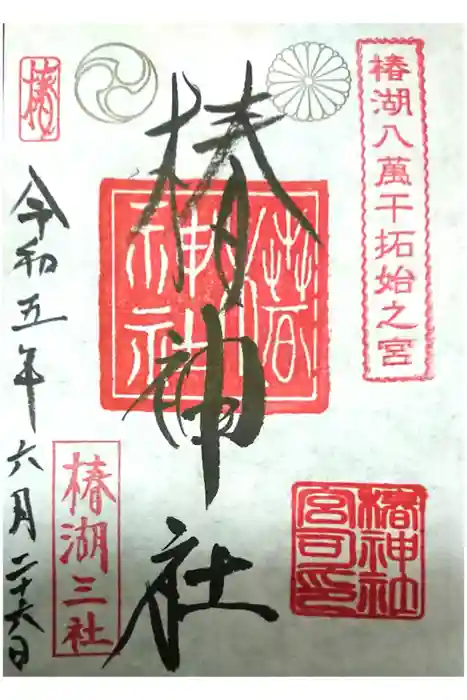 椿湖八萬干拓始之宮
椿神社
椿神社
椿神社宮司印
椿
令和五年六月二十六日
椿湖三社